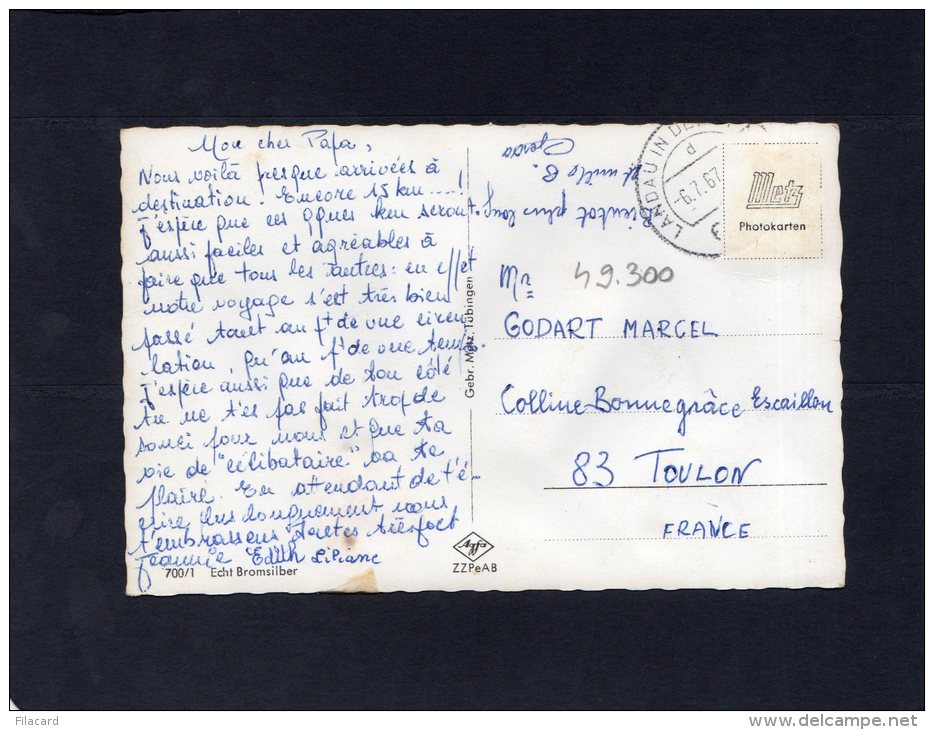 Mon cher Papa,
Nous voilà presque arrivées à
destination. Encore 15 km ....!
J'espère que ces qques km seront
aussi faciles et agréables à
faire que tous les autres : en effet
notre voyage s'est très bien
passé tant au pt de vue circu
lation, qu'au pt de vue temps.
J'espère aussi que de ton côté
tu ne t'es pas fait trop de
souci pour nous et que ta
vie de "célibataire" va te
plaire. En attendant de t'é-
crire plus longuement nous
t'embrassons toutes très fort
Jeannie Edith Liliane
700/1 Echt Bromsilber
Gebr. Metz, Tübingen
Agfa
ZZPeAB
Bientôt plus long.
Gerda
LANDAU IN DER
d
-6.7.67
3
Metz
Photokarten
Mr 49.300
GODART MARCEL
Colline Bonnegrâce Escaillon
83 TOULON
FRANCE
Filacard
www.delcampe.net